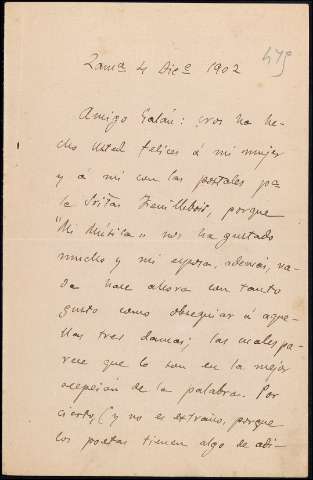 479
Zamª 4 Dicᵉ 1902
Amigo Galán: nos ha he-
cho Usted felices á mi mujer
y á mi con las postales pª
la Sritas, porque
"Mi Música" nos ha gustado
mucho y mi esposa, además, na-
da hace ahora con tanto
gusto como obsequiar á aque-
llas tres damas; las cuales pa-
rece que lo son en la mejor
acepción de la palabra. Por
cierto, (y no es extraño, porque
los poetas tienen algo de adi-